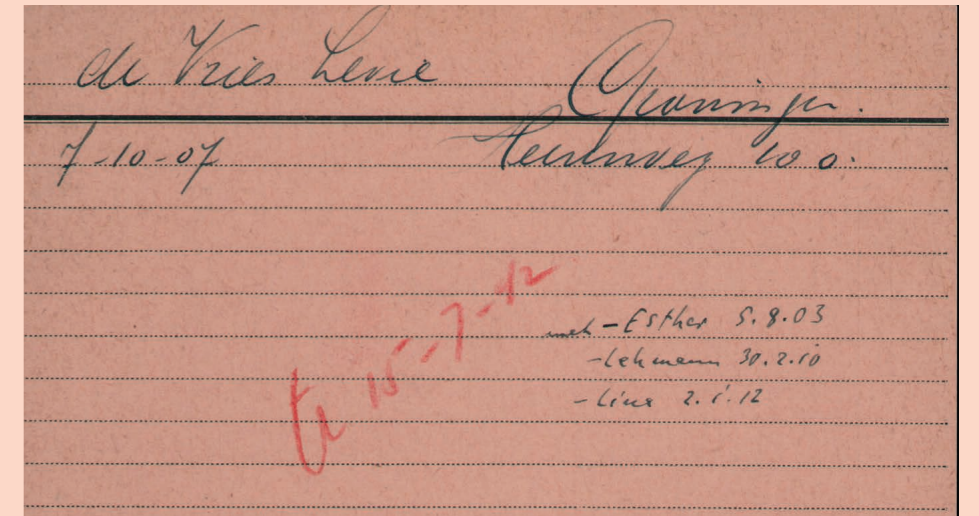 de Vries Levie Groningen.
7-10-07 Heereweg 10 o.
tr 15-7-42
- Esther 5.8.03
- Lehmann 30.2.10
- Lina 2.1.12